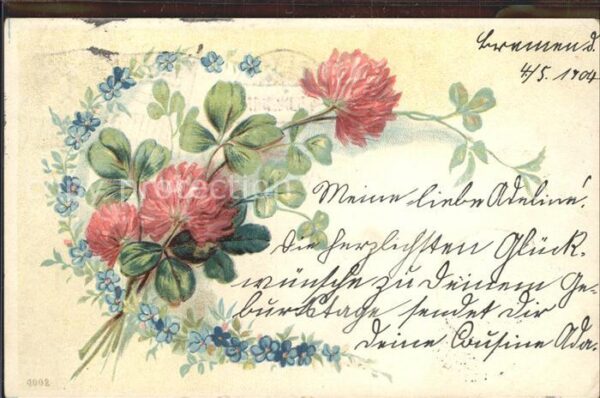 Bremen d.
4/5. 1904
Meine liebe Adeline!
Die herzlichsten Glück-
wünsche zu Deinem Ge-
burtstage sendet Dir
Deine Cousine Ada.
Protection
9098